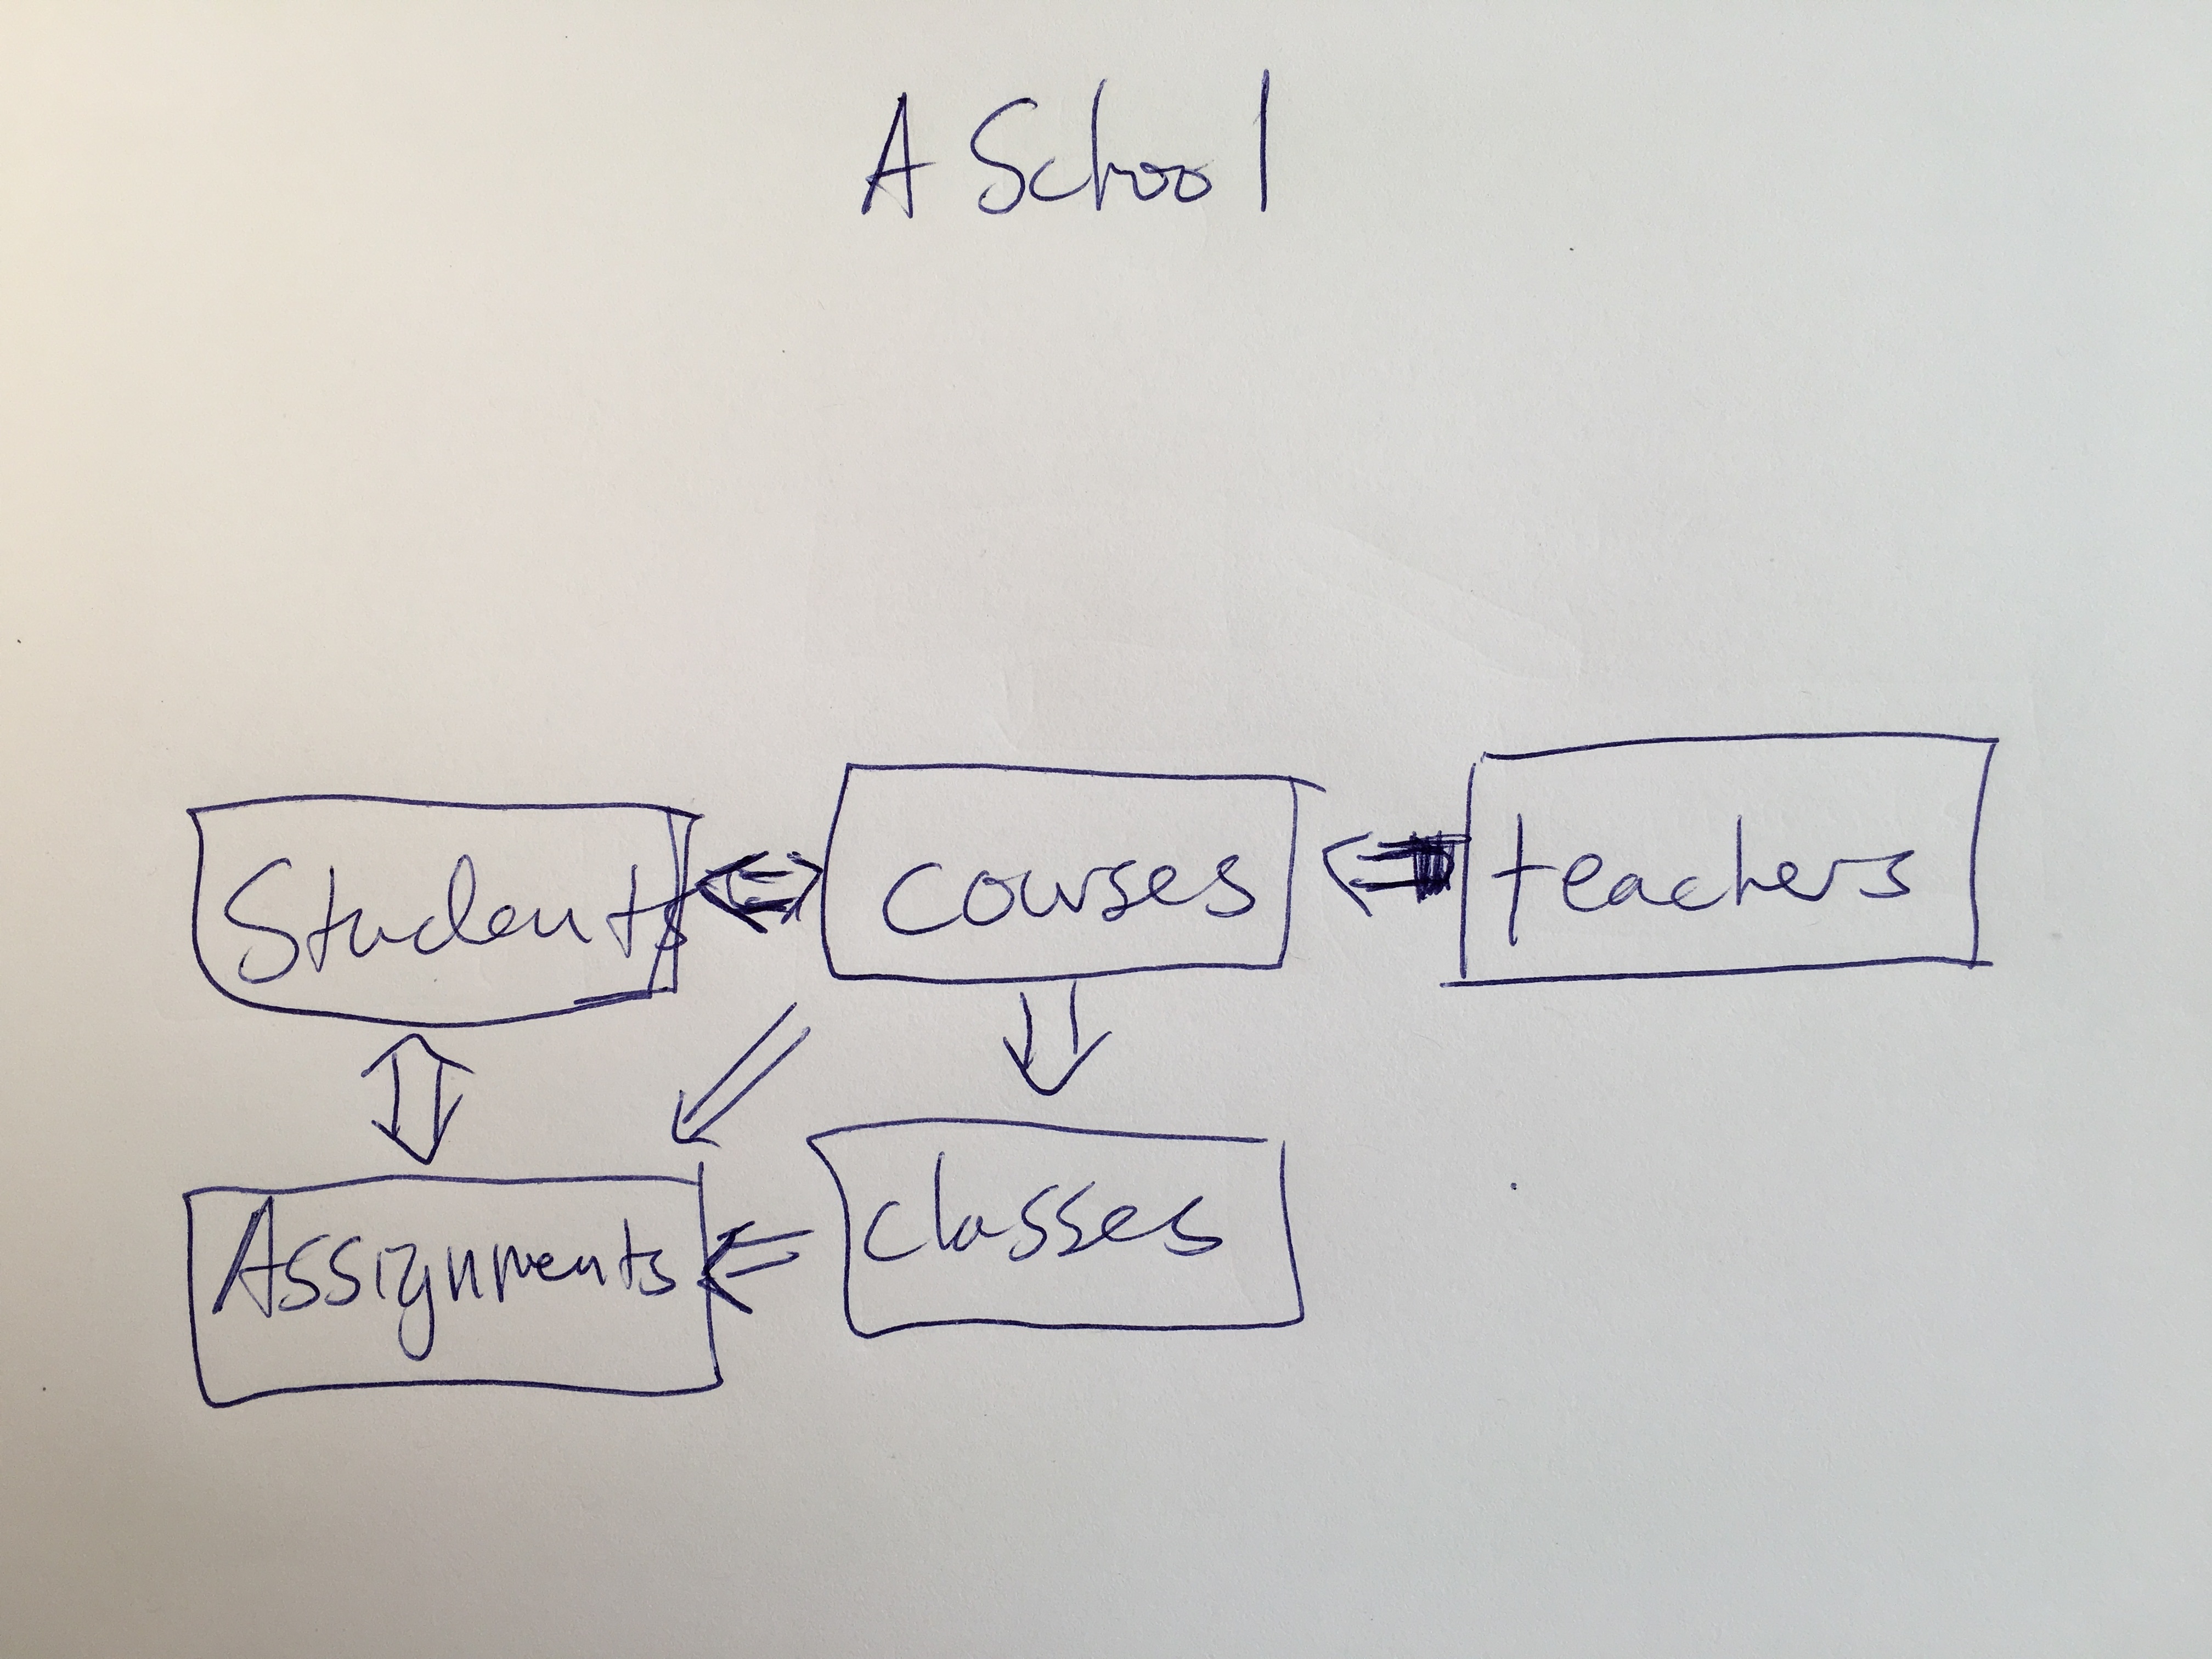 A School
Students
courses
teachers
Assignments
classes